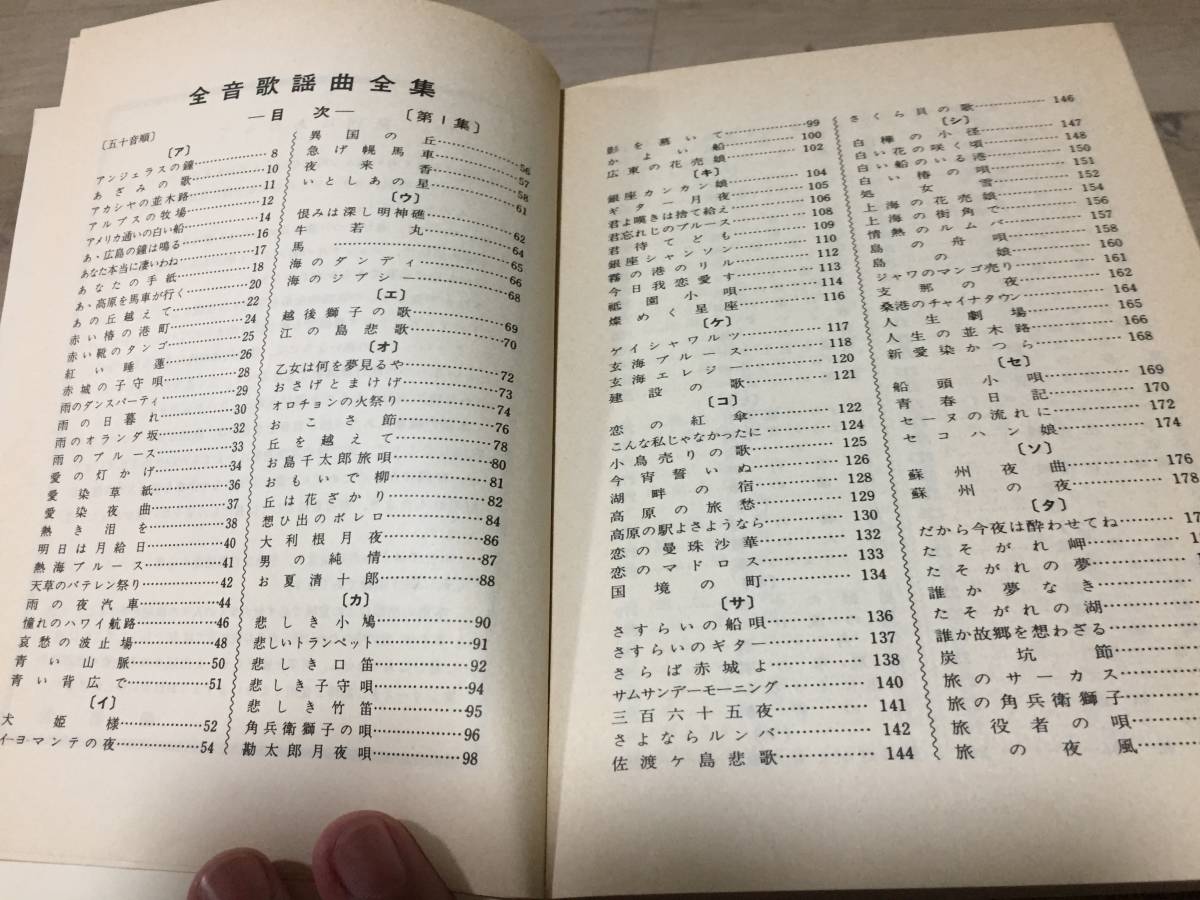 全音歌謡曲全集
—目次— 〔第1集〕
〔五十音順〕
〔ア〕
アンジェラスの鐘 8
あざみの歌 10
アカシヤの並木路 11
アルプスの牧場 12
アメリカ通いの白い船 14
あゝ広島の鐘は鳴る 16
あなた本当に凄いわね 17
あなたの手紙 18
あゝ高原を馬車が行く 20
あの丘越えて 22
赤い椿の港町 24
赤い靴のタンゴ 25
紅い睡蓮 26
赤城の子守唄 28
雨のダンスパーティ 29
雨の日暮れ 30
雨のオランダ坂 32
雨のブルース 33
愛の灯かげ 34
愛染草紙 36
愛染夜曲 37
熱き泪を 38
明日は月給日 40
熱海ブルース 41
天草のバテレン祭り 42
雨の夜汽車 44
憧れのハワイ航路 46
哀愁の波止場 48
青い山脈 50
青い背広で 51
〔イ〕
犬姫様 52
イーヨマンテの夜 54
異国の丘 56
急げ幌馬車 57
夜来香 58
いとしあの星 61
〔ウ〕
恨みは深し明神礁 62
牛若丸 64
馬 65
海のダンディ 66
海のジプシー 68
〔エ〕
越後獅子の歌 69
江の島悲歌 70
〔オ〕
乙女は何を夢見るや 72
おさげとまげけ 73
オロチョンの火祭り 74
おこさ節 76
丘を越えて 78
お島千太郎旅唄 80
おもいで柳 81
丘は花ざかり 82
想ひ出のボレロ 84
大利根月夜 86
男の純情 87
お夏清十郎 88
〔カ〕
悲しき小鳩 90
悲しいトランペット 91
悲しき口笛 92
悲しき子守唄 94
悲しき竹笛 95
角兵衛獅子の唄 96
勘太郎月夜唄 98
影を慕いて 99
かよい船 100
広東の花売娘 102
〔キ〕
銀座カンカン娘 104
ギター月夜 105
君よ嘆きは捨て給え 106
君忘れじのブルース 108
君待てども 109
銀座シャンソン 110
霧の港のリル 112
今日我恋愛す 113
祗園小唄 114
燦めく星座 116
〔ケ〕
ゲイシャワルツ 117
玄海ブルース 118
玄海エレジー 120
建設の歌 121
〔コ〕
恋の紅傘 122
こんな私じゃなかったに 124
小鳥売りの歌 125
今宵誓いぬ 126
湖畔の宿 128
高原の旅愁 129
高原の駅よさようなら 130
恋の曼珠沙華 132
恋のマドロス 133
国境の町 134
〔サ〕
さすらいの船唄 136
さすらいのギター 137
さらば赤城よ 138
サムサンデーモーニング 140
三百六十五夜 141
さよならルンバ 142
佐渡ヶ島悲歌 144
さくら貝の歌 146
〔シ〕
白樺の小径 147
白い花の咲く頃 148
白い船のいる港 150
白い椿の唄 151
処女雪 152
上海の花売娘 154
上海の街角で 156
情熱のルムバ 157
島の舟唄 158
島の娘 160
ジャワのマンゴ売り 161
支那の夜 162
桑港のチャイナタウン 164
人生劇場 165
人生の並木路 166
新愛染かつら 168
〔セ〕
船頭小唄 169
青春日記 170
セーヌの流れに 172
セコハン娘 174
〔ソ〕
蘇州夜曲 176
蘇州の夜 178
〔タ〕
だから今夜は酔わせてね
たそがれ岬
たそがれの夢
誰か夢なき
たそがれの湖
誰か故郷を想わざる
炭坑節
旅のサーカス
旅の角兵衛獅子
旅役者の唄
旅の夜風